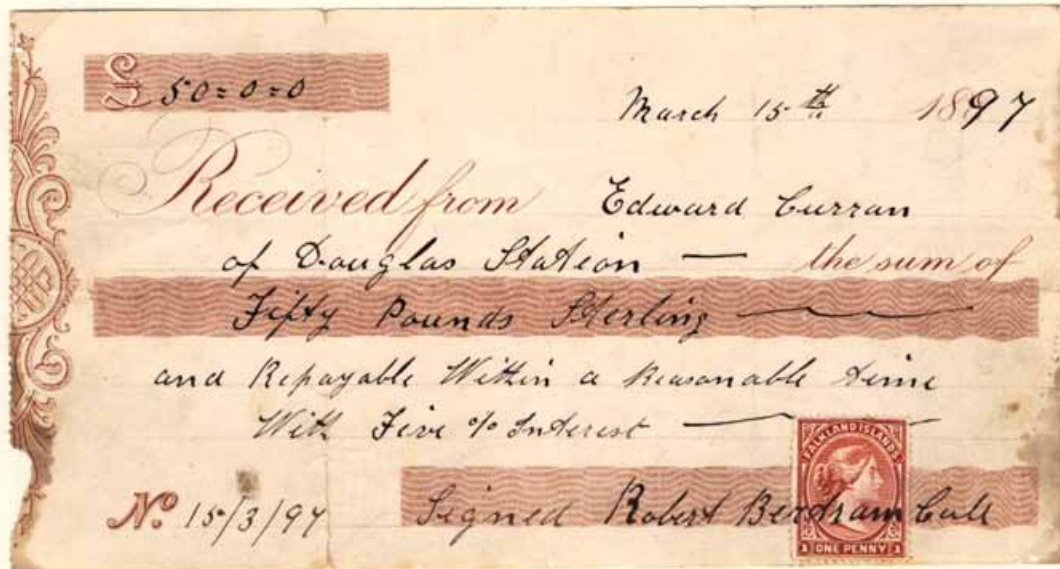 £ 50=0=0
March 15th 1897
Received from Edward Curran
of Douglas Station — the sum of
Fifty Pounds Sterling
and Repayable Within a Reasonable time
With Five % Interest
FALKLAND ISLANDS
1 ONE PENNY 1
No 15/3/97 Signed Robert Bertram